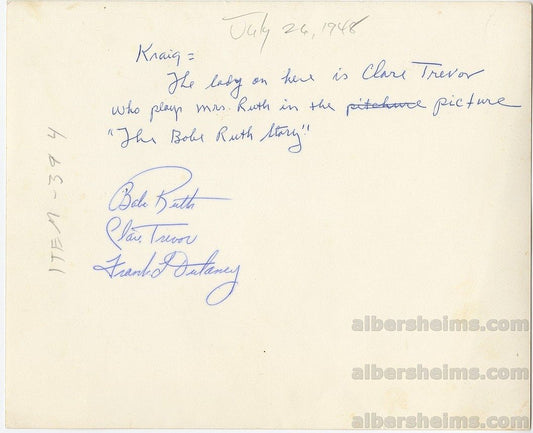 July 26, 1948
Kraig =
The lady on here is Clare Trevor
who plays Mrs. Ruth in the pitchure picture
"The Babe Ruth Story"
Babe Ruth
Clare Trevor
Frank J Dulaney
ITEM-394
albersheims.com
albersheims.com
albersheims.com